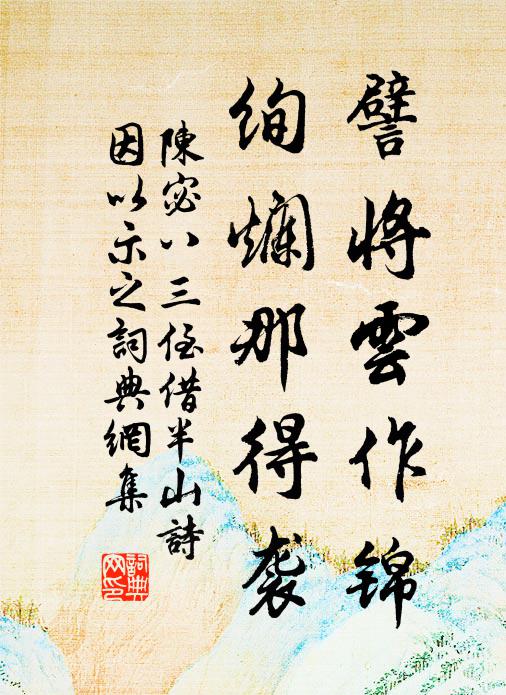 譬將雲作錦
絢爛那得襲
陳宓八三侄借半山詩
因以示之詞典網集
詞典
网印